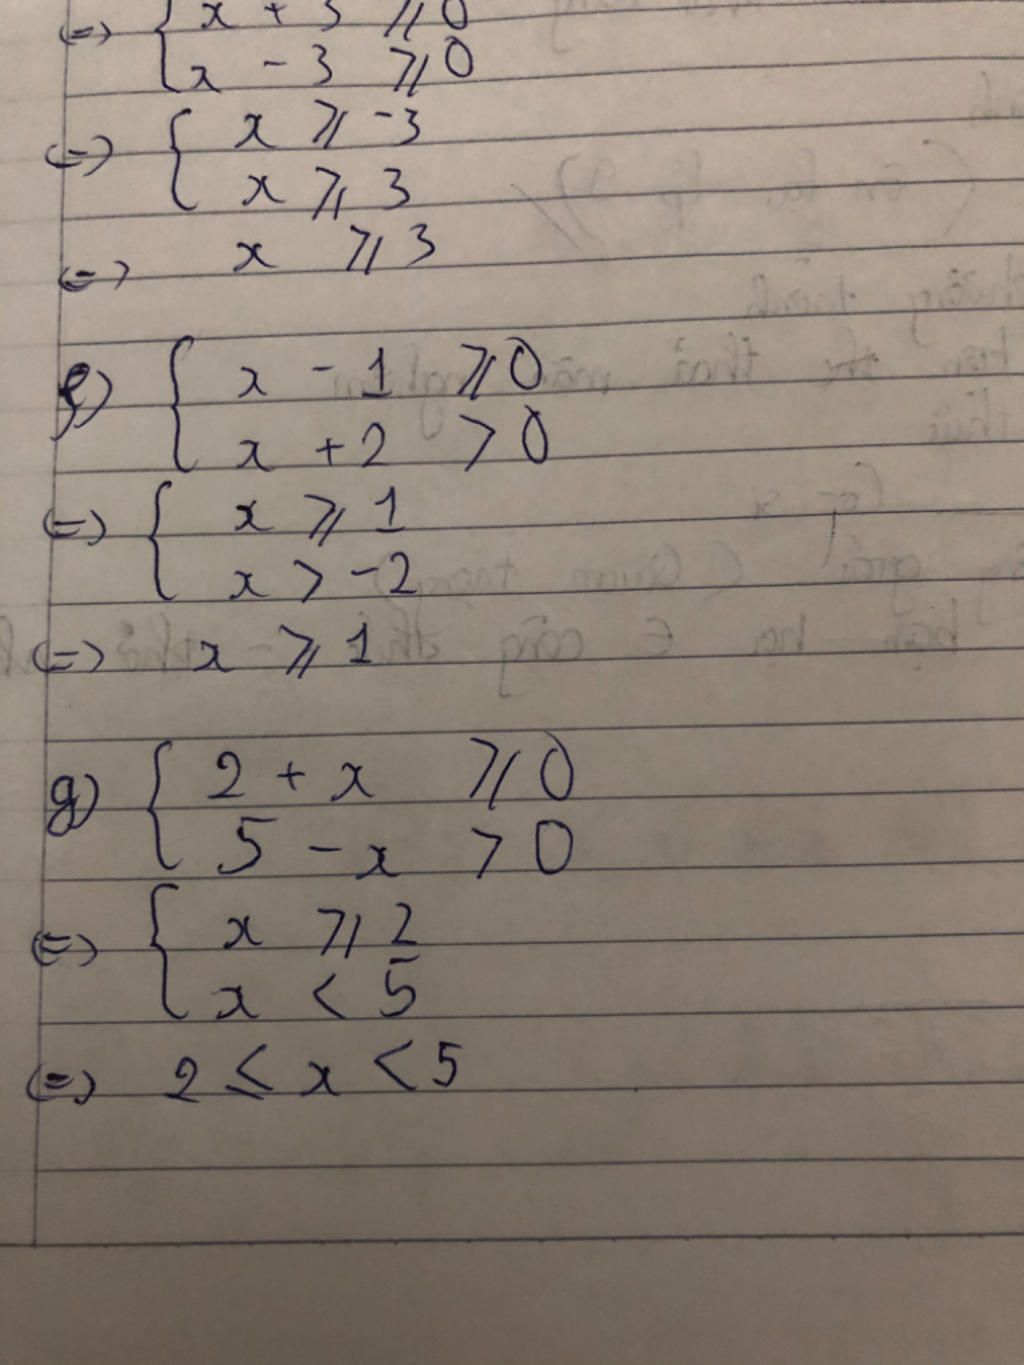 ⇔ { x + 3 ⩾ 0
x - 3 ⩾ 0
⇔ { x ⩾ -3
x ⩾ 3
⇔ x ⩾ 3
f) { x - 1 ⩾ 0
x + 2 > 0
⇔ { x ⩾ 1
x > -2
⇔ x ⩾ 1
g) { 2 + x ⩾ 0
5 - x > 0
⇔ { x ⩾ 2
x < 5
⇔ 2 ≤ x < 5